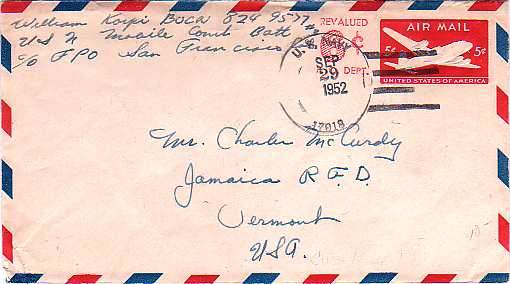 William Koski BUCN 824 95 77
USN Mobile Const Batt #
c/o FPO San Francisco
REVALUED
6 ¢
P.O. DEPT.
U.S. NAVY
SEP
29
1952
17018
AIR MAIL
5¢ 5¢
UNITED STATES OF AMERICA
Mr. Charles McCurdy
Jamaica R.F.D.
Vermont
USA.